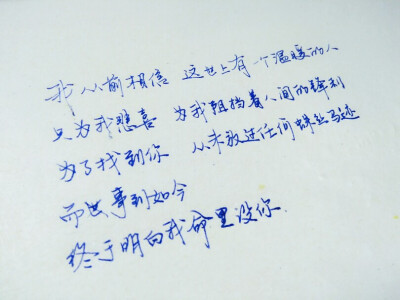 我从前相信 这世上有一个温暖的人
只为我悲喜 为我阻挡着人间的锋利
为了找到你 从未放过任何蛛丝马迹
而世事到如今
终于明白我命里没你